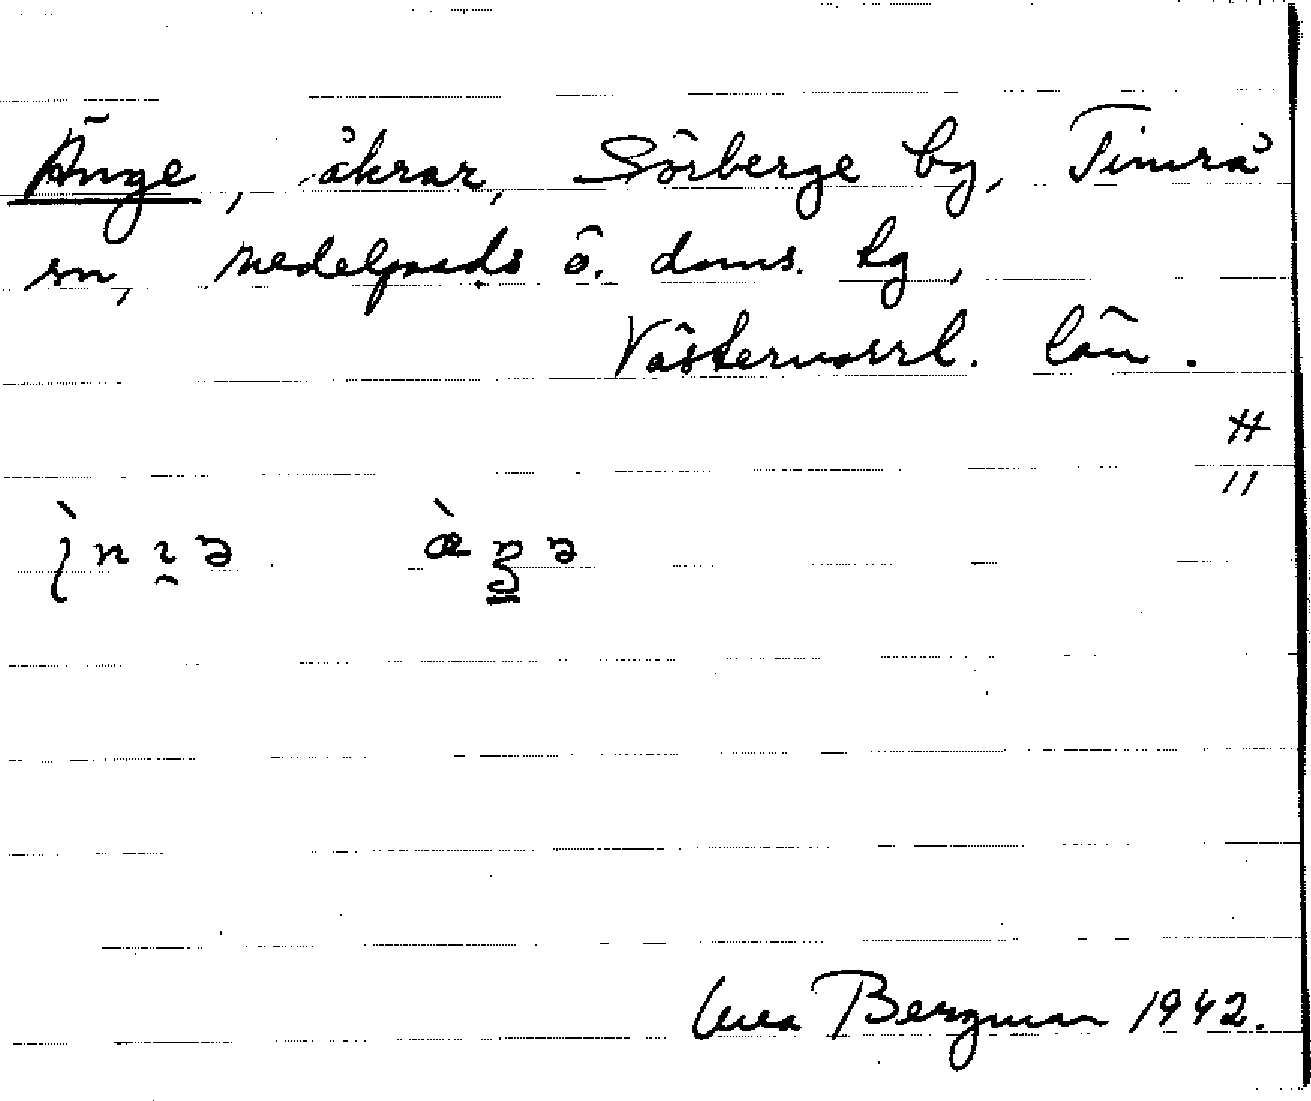 Änge, åkrar, Sörberge by, Timrå
sn, Medelpads ö. doms. hg,
Västernorrl. län.
Bergman 1942.